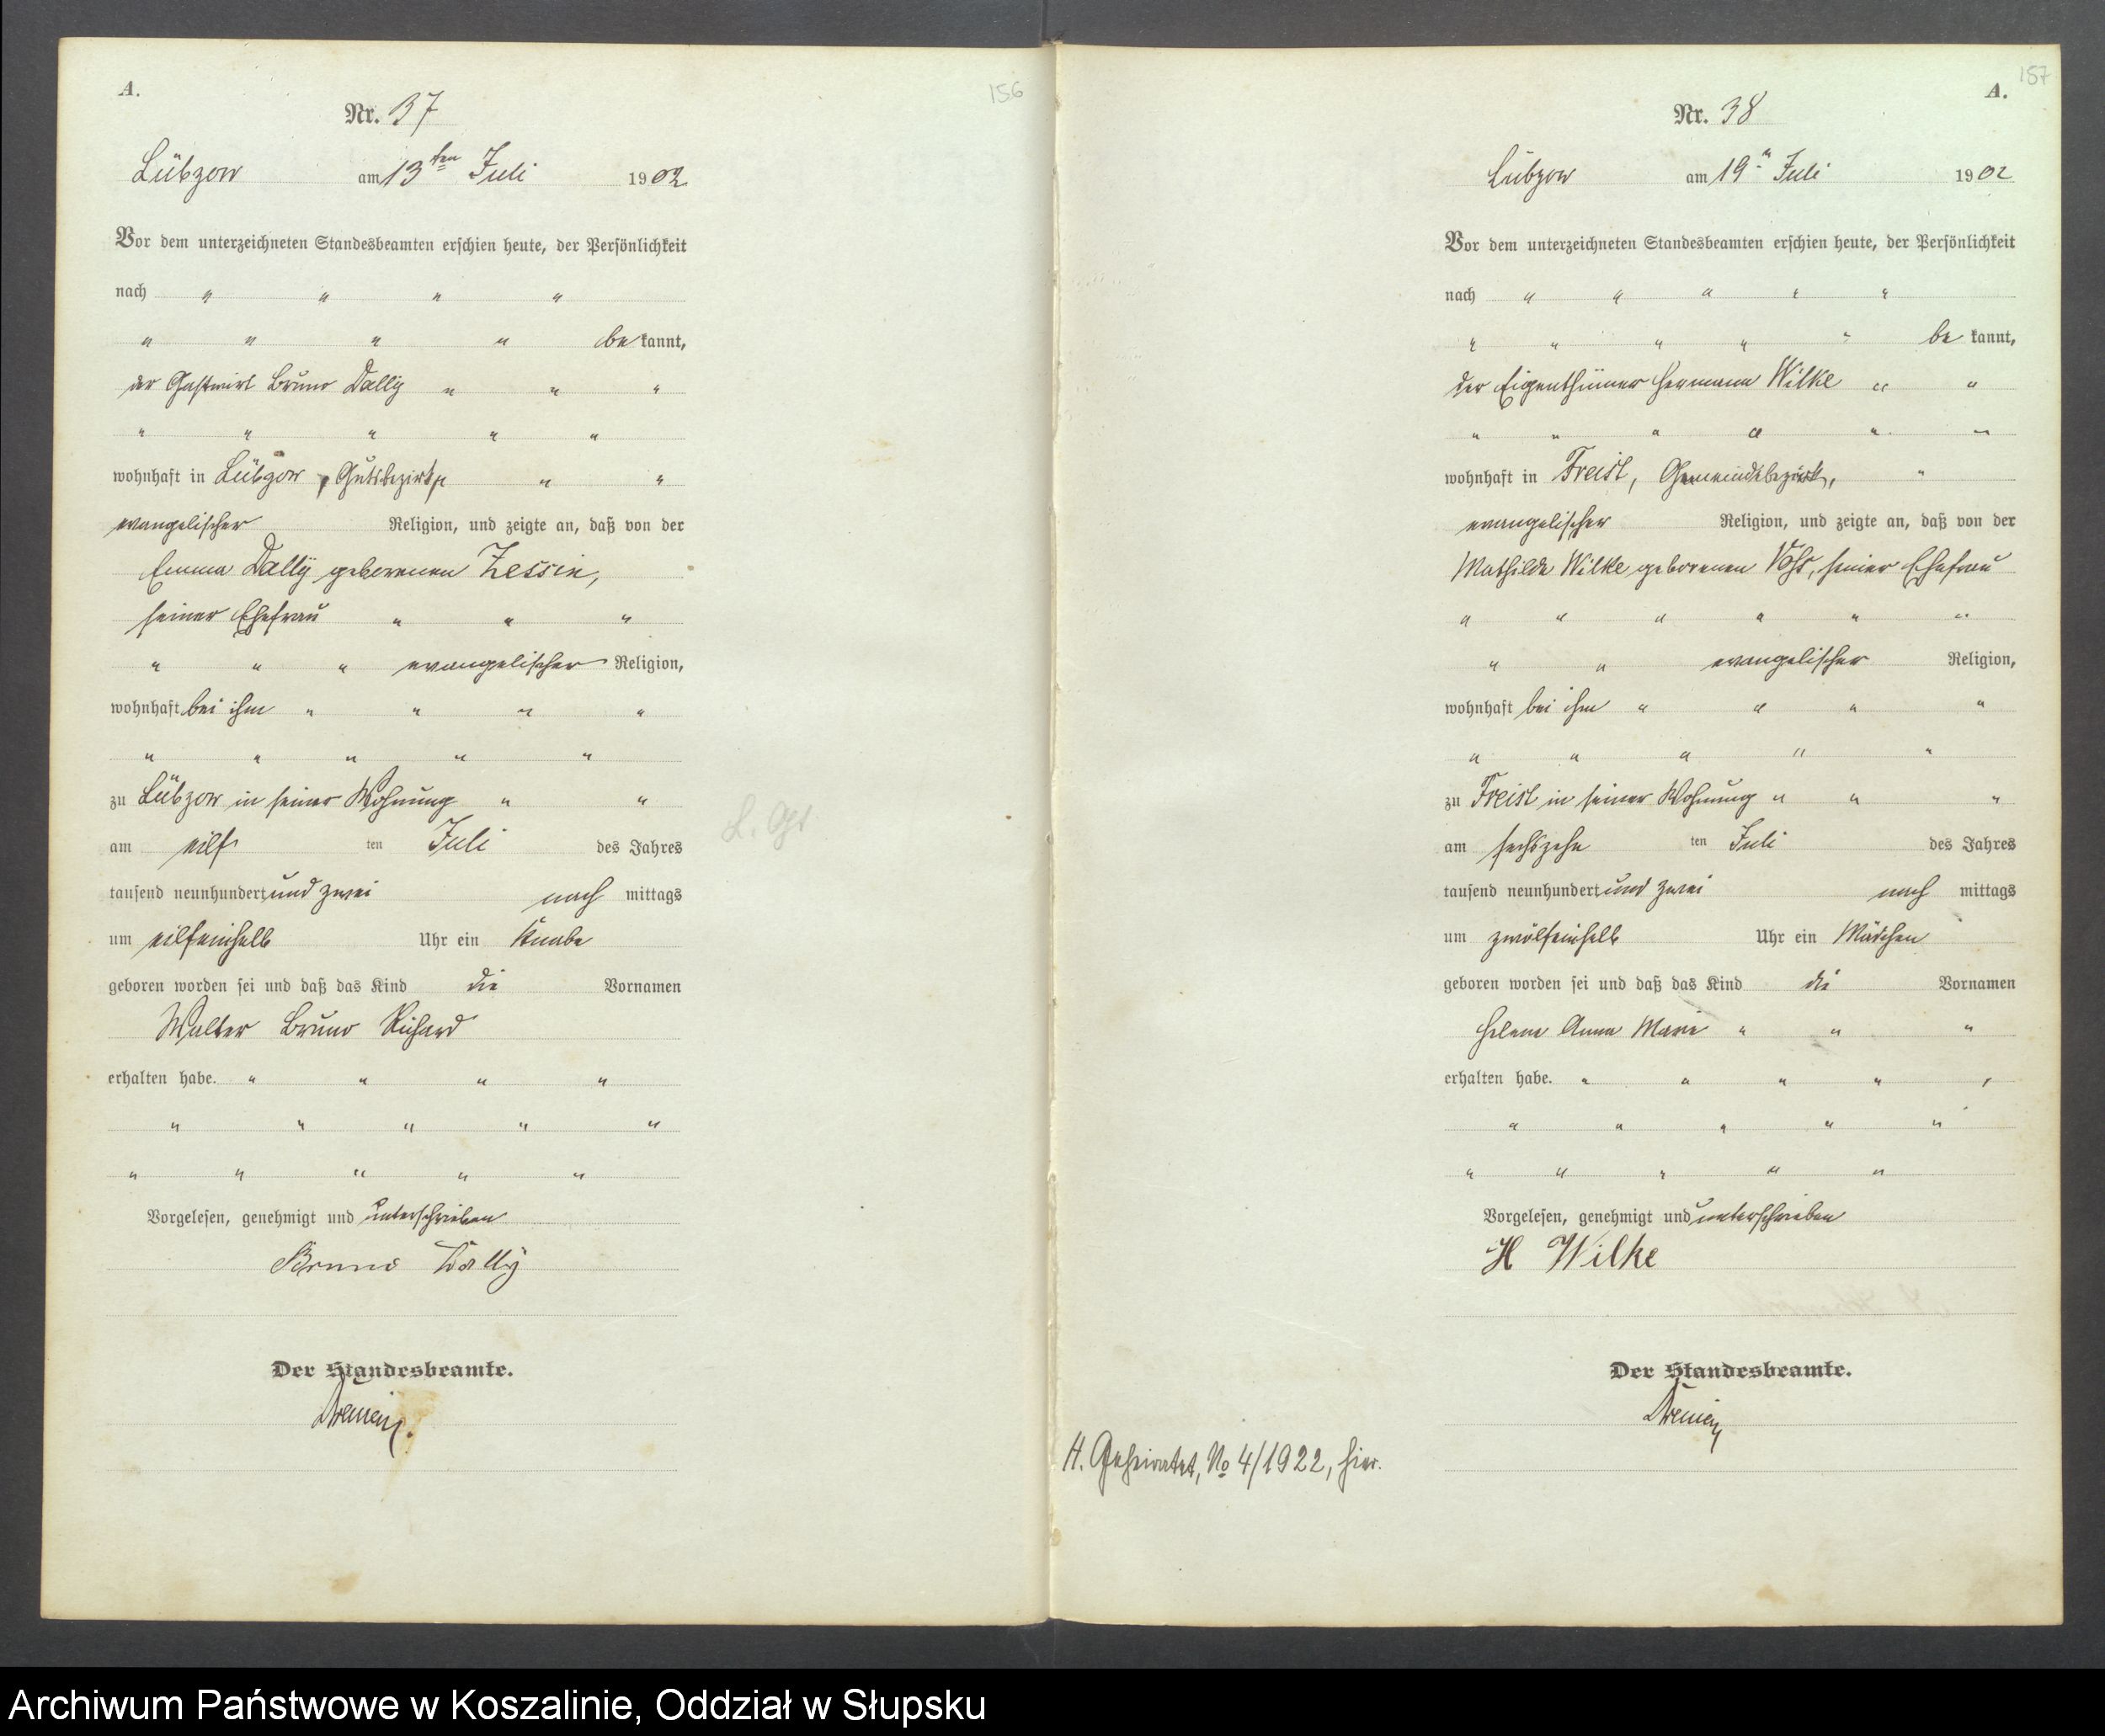 A.
156
Nr. 37
Lübzow am 13ten Juli 1902
Vor dem unterzeichneten Standesbeamten erschien heute, der Persönlichkeit
nach " " " "
" " " " be kannt,
der Gastwirt Bruno Dally " " "
" " " " "
wohnhaft in Lübzow, Gutsbezirk, " "
evangelischer Religion, und zeigte an, daß von der
Emma Dally geborenen Zessin,
seiner Ehefrau " " "
" " " evangelischer Religion,
wohnhaft bei ihm " " " "
" " " " "
zu Lübzow in seiner Wohnung " "
am eilf ten Juli des Jahres
tausend neunhundert und zwei nach mittags
um eilfeinhalb Uhr ein Knabe
geboren worden sei und daß das Kind die Vornamen
Walter Bruno Richard
erhalten habe. " " " "
" " " " "
" " " " "
Vorgelesen, genehmigt und unterschrieben
Bruno Dally
Der Standesbeamte.
157
A.
Nr. 38
Lübzow am 19n Juli 1902
Vor dem unterzeichneten Standesbeamten erschien heute, der Persönlichkeit
nach " " " " "
" " " " " be kannt,
der Eigenthümer Hermann Wilke " "
" " " " " "
wohnhaft in Freist, Gemeindebezirk, "
evangelischer Religion, und zeigte an, daß von der
Mathilde Wilke geborenen Voß, seiner Ehefrau
" " " " " "
" " evangelischer Religion,
wohnhaft bei ihm " " " "
" " " " "
zu Freist in seiner Wohnung " " "
am sechszehn ten Juli des Jahres
tausend neunhundert und zwei nach mittags
um zwölfeinhalb Uhr ein Mädchen
geboren worden sei und daß das Kind die Vornamen
Helene Anna Marie " " "
erhalten habe. " " " " "
" " " " "
" " " " "
Vorgelesen, genehmigt und unterschrieben
H Wilke
Der Standesbeamte.
H. Geheiratet, No 4/1922, hier.
Archiwum Państwowe w Koszalinie, Oddział w Słupsku